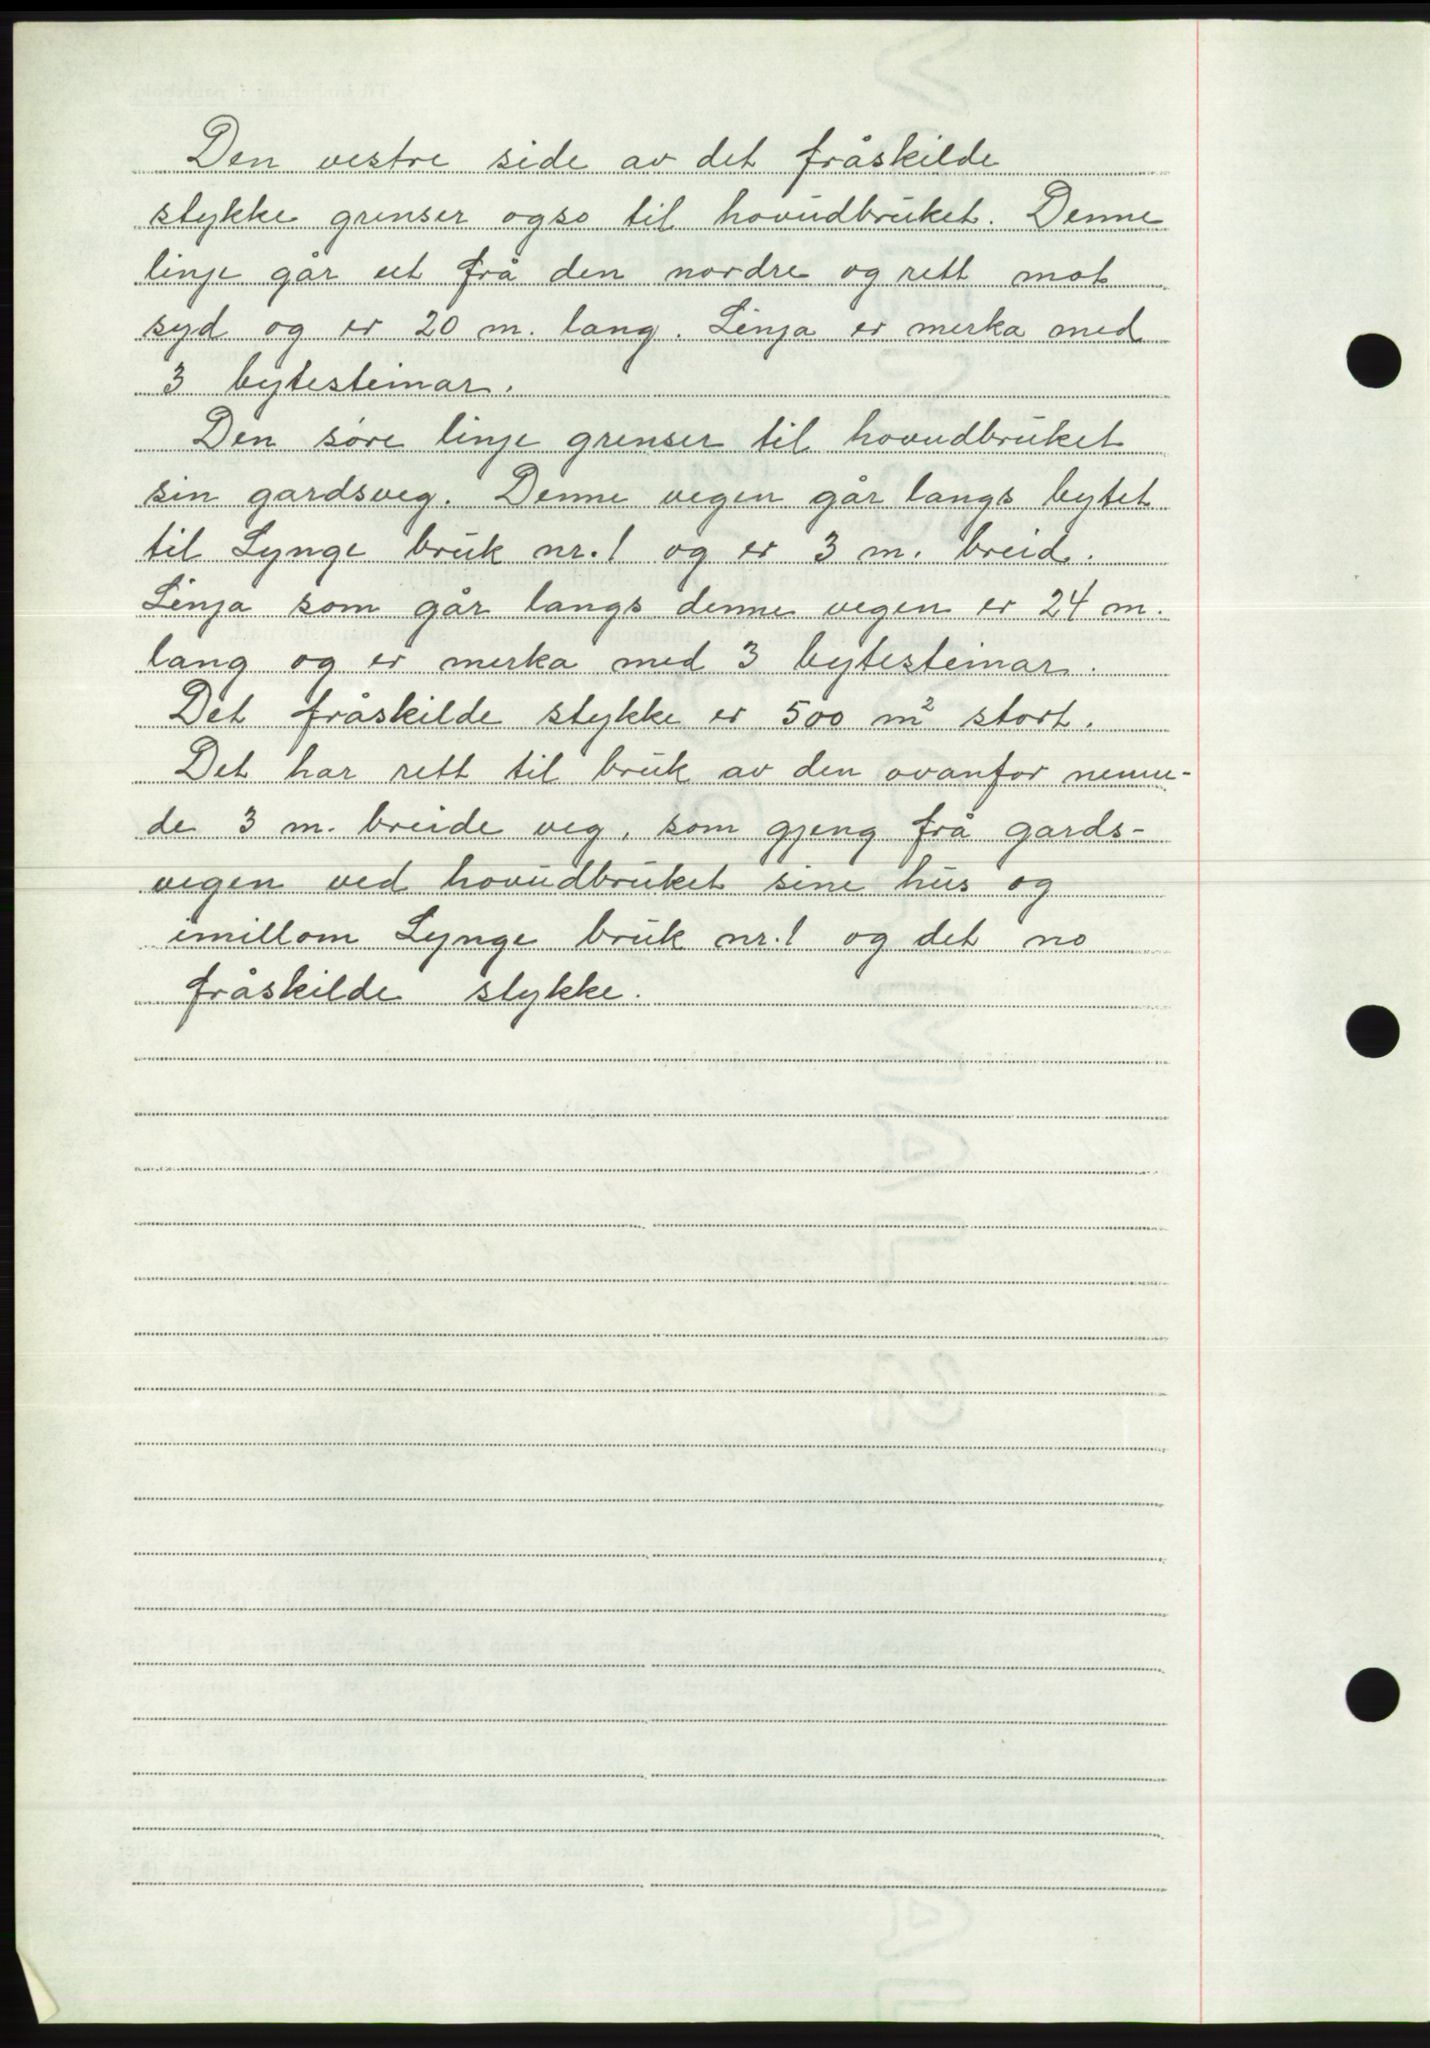 Den vestre side av det fråskilde
stykke grenser ogso til hovudbruket. Denne
linje går ut frå den nordre og rett mot
syd og er 20 m. lang. Linja er merka med
3 bytesteinar.
Den søre linje grenser til hovudbruket
sin gardsveg. Denne vegen går langs bytet
til Lynge bruk nr. 1 og er 3 m. breid.
Linja som går langs denne vegen er 24 m.
lang og er merka med 3 bytesteinar.
Det fråskilde stykke er 500 m² stort.
Det har rett til bruk av den ovanfor nemn-
de 3 m. breide veg, som gjeng frå gards-
vegen ved hovudbruket sine hus og
imillom Lynge bruk nr. 1 og det no
fråskilde stykke.